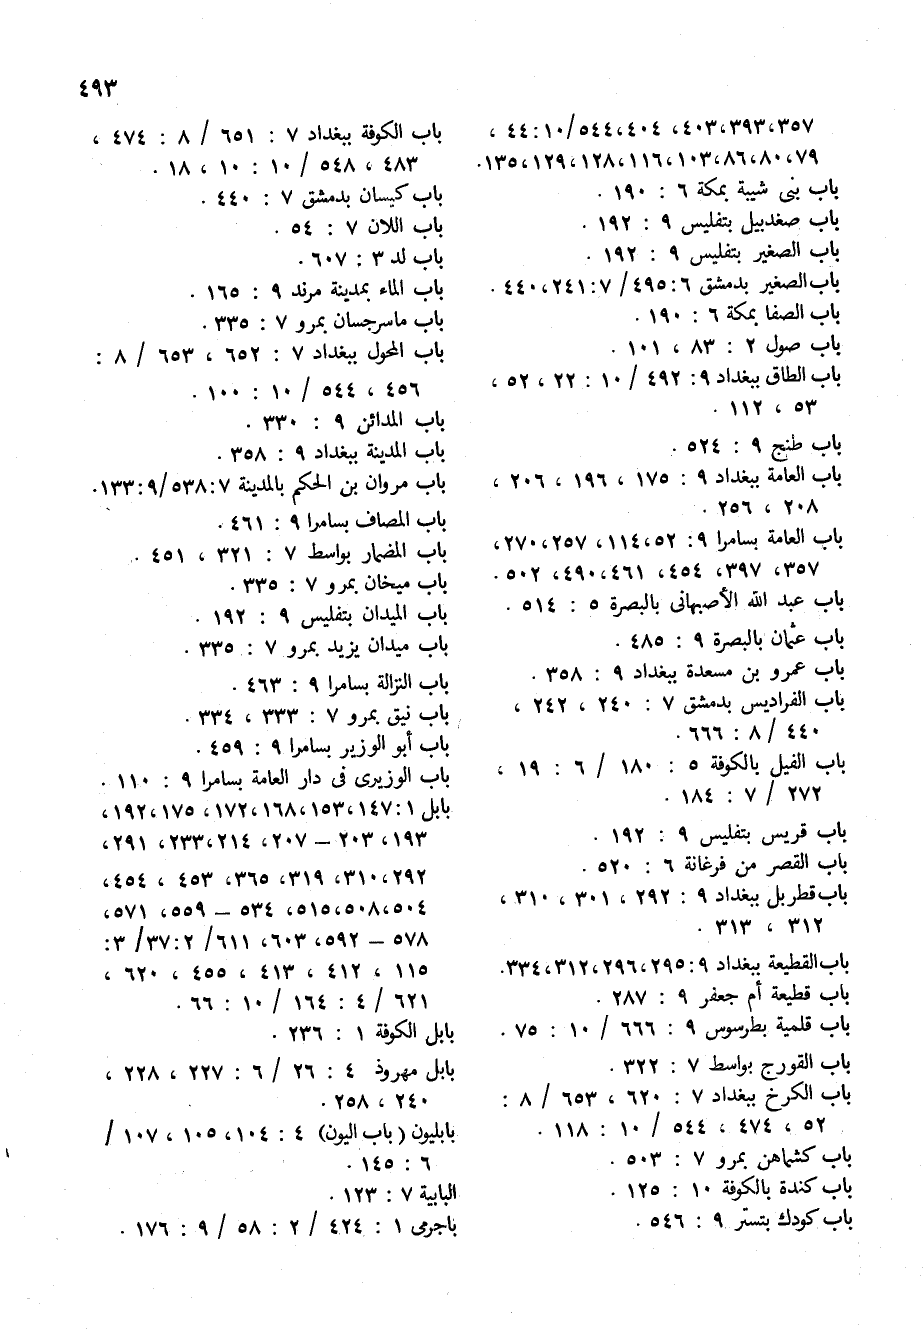 ٤٩٣
٣٥٧،٣٩٣،٤٠٣، ٥٤٤،٤٠٤/١٠:٤٤ ،
٧٩،٨٠،٨٦،١٠٣،١١٦،١٢٨،١٢٩،١٣٥.
باب بنى شيبة بمكة ٦ : ١٩٠ .
باب صغدبيل بتفليس ٩ : ١٩٢ .
باب الصغير بتفليس ٩ : ١٩٢ .
باب الصغير بدمشق ٦:٤٩٥/ ٧:٢٤١،٤٤٠ .
باب الصفا بمكة ٦ : ١٩٠ .
باب صول ٢ : ٨٣ ، ١٠١ .
باب الطاق ببغداد ٩: ٤٩٢ / ١٠ : ٢٢ ، ٥٢ ،
٥٣ ، ١١٢ .
باب طنج ٩ : ٥٢٤ .
باب العامة ببغداد ٩ : ١٧٥ ، ١٩٦ ، ٢٠٦ ،
٢٠٨ ، ٢٥٦ .
باب العامة بسامرا ٩: ٥٢،١١٤، ٢٥٧،٢٧٠،
٣٥٧، ٣٩٧، ٤٥٤، ٤٦١،٤٩٠، ٥٠٢.
باب عبد الله الأصبهانى بالبصرة ٥ : ٥١٤ .
باب عثمان بالبصرة ٩ : ٤٨٥ .
باب عمرو بن مسعدة ببغداد ٩ : ٣٥٨ .
باب الفراديس بدمشق ٧ : ٢٤٠ ، ٢٤٢ ،
٤٤٠ / ٨ : ٦٦٦ .
باب الفيل بالكوفة ٥ : ١٨٠ / ٦ : ١٩ ،
٢٧٢ / ٧ : ١٨٤ .
باب قريس بتفليس ٩ : ١٩٢ .
باب القصر من فرغانة ٦ : ٥٢٠ .
باب قطربل ببغداد ٩ : ٢٩٢ ، ٣٠١ ، ٣١٠ ،
٣١٢ ، ٣١٣ .
باب القطيعة ببغداد ٩:٢٩٥،٢٩٦،٣١٢،٣٣٤.
باب قطيعة أم جعفر ٩ : ٢٨٧ .
باب قلمية بطرسوس ٩ : ٦٦٦ / ١٠ : ٧٥ .
باب القورج بواسط ٧ : ٣٢٢ .
باب الكرخ ببغداد ٧ : ٦٢٠ ، ٦٥٣ / ٨ :
٥٢ ، ٤٧٤ ، ٥٤٤ / ١٠ : ١١٨ .
باب كشماهن بمرو ٧ : ٥٠٣ .
باب كندة بالكوفة ١٠ : ١٢٥ .
باب كودك بتستر ٩ : ٥٤٦ .
باب الكوفة ببغداد ٧ : ٦٥١ / ٨ : ٤٧٤ ،
٤٨٣ ، ٥٤٨ / ١٠ : ١٠ ، ١٨ .
باب كيسان بدمشق ٧ : ٤٤٠ .
باب اللان ٧ : ٥٤ .
باب لد ٣ : ٦٠٧ .
باب الماء بمدينة مرند ٩ : ١٦٥ .
باب ماسرجسان بمرو ٧ : ٣٣٥ .
باب المحول ببغداد ٧ : ٦٥٢ ، ٦٥٣ / ٨ :
٤٥٦ ، ٥٤٤ / ١٠ : ١٠٠ .
باب المدائن ٩ : ٣٣٠ .
باب المدينة ببغداد ٩ : ٣٥٨ .
باب مروان بن الحكم بالمدينة ٧:٥٣٨/٩:١٣٣.
باب المصاف بسامرا ٩ : ٤٦١ .
باب المضمار بواسط ٧ : ٣٢١ ، ٤٥١ .
باب ميخان بمرو ٧ : ٣٣٥ .
باب الميدان بتفليس ٩ : ١٩٢ .
باب ميدان يزيد بمرو ٧ : ٣٣٥ .
باب النزالة بسامرا ٩ : ٤٦٣ .
باب نيق بمرو ٧ : ٣٣٣ ، ٣٣٤ .
باب أبو الوزير بسامرا ٩ : ٤٥٩ .
باب الوزيرى فى دار العامة بسامرا ٩ : ١١٠ .
بابل ١:١٤٧،١٥٣،١٦٨،١٧٢، ١٧٥،١٩٢،
١٩٣، ٢٠٣ – ٢٠٧، ٢١٤،٢٣٣، ٢٩١،
٢٩٢،٣١٠، ٣١٩، ٣٦٥، ٤٥٣ ، ٤٥٤،
٥٠٤،٥٠٨،٥١٥، ٥٣٤ – ٥٥٩، ٥٧١،
٥٧٨ – ٥٩٢، ٦٠٣، ٦١١/ ٣٧:٢/ ٣:
١١٥ ، ٤١٢ ، ٤١٣ ، ٤٥٥ ، ٦٢٠ ،
٦٢١ / ٤ : ١٦٤ / ١٠ : ٦٦ .
بابل الكوفة ١ : ٢٣٦ .
بابل مهروذ ٤ : ٢٦ / ٦ : ٢٢٧ ، ٢٢٨ ،
٢٤٠ ، ٢٥٨ .
بابليون ( باب اليون) ٤ : ١٠٤، ١٠٥ ، ١٠٧ /
٦ : ١٤٥ .
البابية ٧ : ١٢٣ .
باجرمى ١ : ٤٢٤ / ٢ : ٥٨ / ٩ : ١٧٦ .